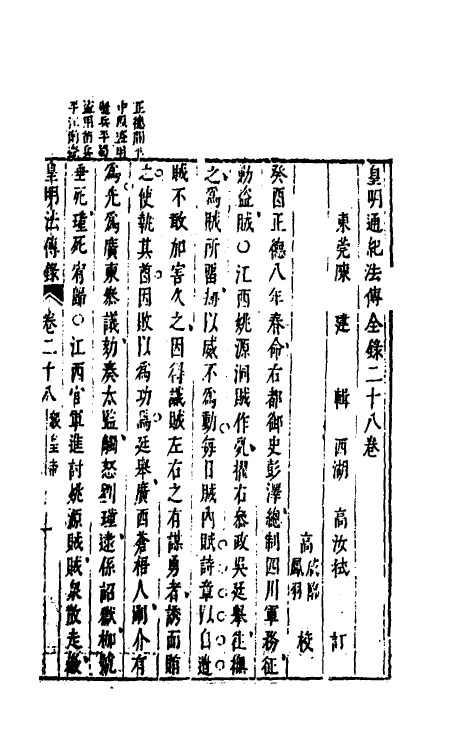 皇明通紀法傳全錄二十八卷
東莞陳 建 輯 西湖 高汝栻 訂
高 校
癸酉正德八年春命右都御史彭澤總制四川軍務征
勦盜賊〇江西姚源洞賊作亂擢右參政吳廷舉往撫
之為賊所留刼以威不為動每日賊內賦詩章以自遣
賊不敢加害久之因得議賊左右之有謀勇者誘而賄
之使執其酋因敗以為功焉廷舉廣西蒼梧人剛介有
為先為廣東參議劾奏太監觸怒劉瑾逮係詔獄枷號
垂死瑾死宥歸〇江西官軍進討姚源賊賊衆散走
皇明法傳錄 卷二十八
正德間平
中原盜用
邊兵平蜀